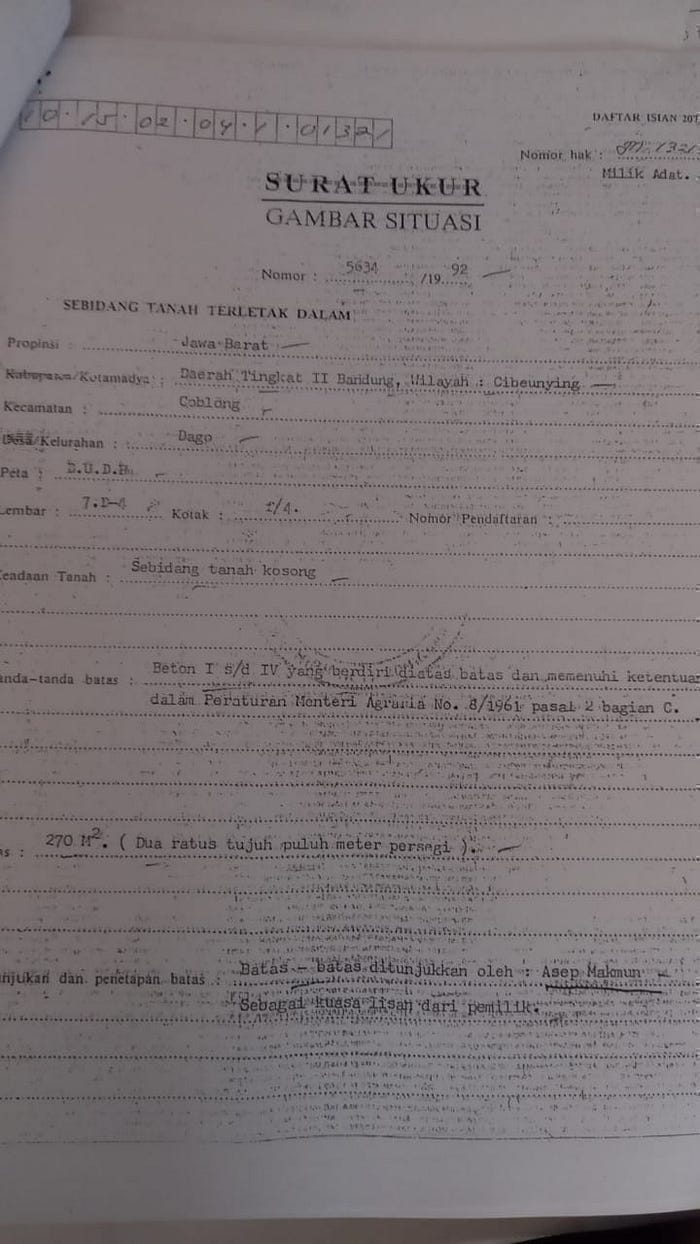 10.15.02.04.1.01321
DAFTAR ISIAN 207
Nomor hak :
Milik Adat.
SURAT UKUR
GAMBAR SITUASI
Nomor : 5634 /19 92
SEBIDANG TANAH TERLETAK DALAM
Propinsi : Jawa Barat
Kabupaten/Kotamadya : Daerah Tingkat II Bandung, Wilayah : Cibeunying
Kecamatan : Coblong
Desa/Kelurahan : Dago
Peta :
Lembar : Kotak : Nomor Pendaftaran :
eadaan Tanah : Sebidang tanah kosong
anda-tanda batas : Beton I s/d IV yang berdiri diatas batas dan memenuhi ketentuan
dalam Peraturan Menteri Agraria No. 8/1961 pasal 2 bagian C.
as : 270 M². ( Dua ratus tujuh puluh meter persegi ).
unjukan dan penetapan batas : Batas - batas ditunjukkan oleh : Asep Makmun
Sebagai kuasa lisan dari pemilik.